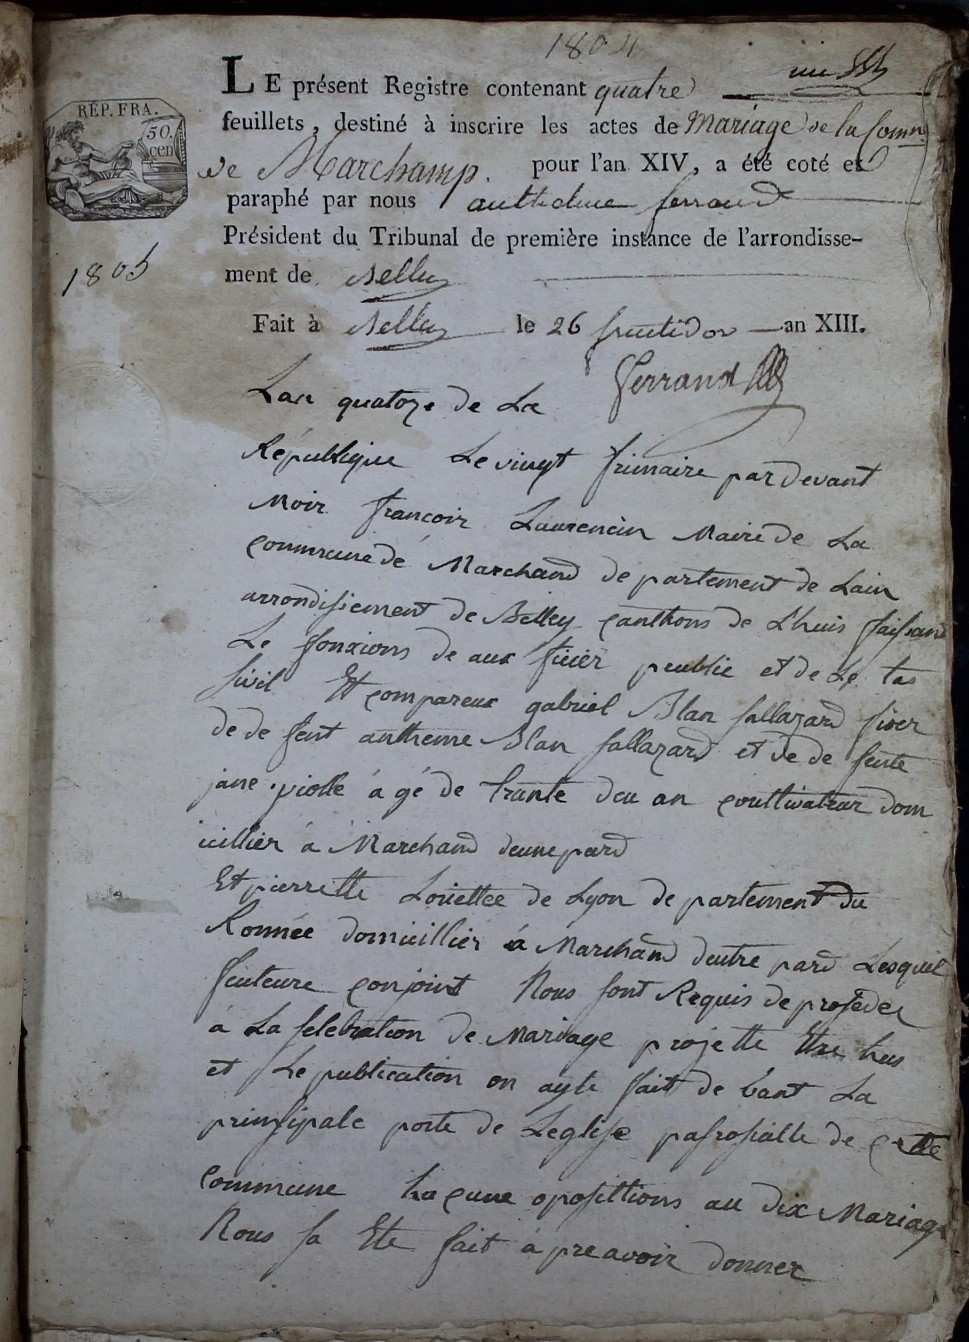 1804
LE présent Registre contenant quatre
RÉP. FRA.
50.
cen
feuillets, destiné à inscrire les actes de Mariage de la Comm.
de Marchamp. pour l'an XIV, a été coté et
paraphé par nous anthelme ferrand
Président du Tribunal de première instance de l'arrondisse-
1805
ment de Belley
Fait à Belley le 26 fructidor an XIII.
ferrand
Lan quatorze de La
République Le vingt frimaire par devant
Moir francoir Laurencin Maire de La
commune dé Marchand de partement de Lain
arrondissement de Belley canthons de Lhuis faisand
Le fonxions de aux ficier peublic et de Le tas
sivil Et compareux gabriel Blan sallazard fixer
de de feut antheme Blan sallazard et de de feute
jane piolle á gé de trante deu an coultivateur dom
icillier à Marchand deune pard
Et pierrette Louettee de Lyon de partement du
Ronnée domicillier à Marchand deutre pard Lesquel
feuteure conjoint Nous sont Requis de proseder
à La selebration de Mariage projette
et Le publication on ayte fait de vant La
prinsipale porte de Leglise parosialle de cette
commune hacune oposittions au dix Mariage
Nous sa Ete fait a pre avoir donner